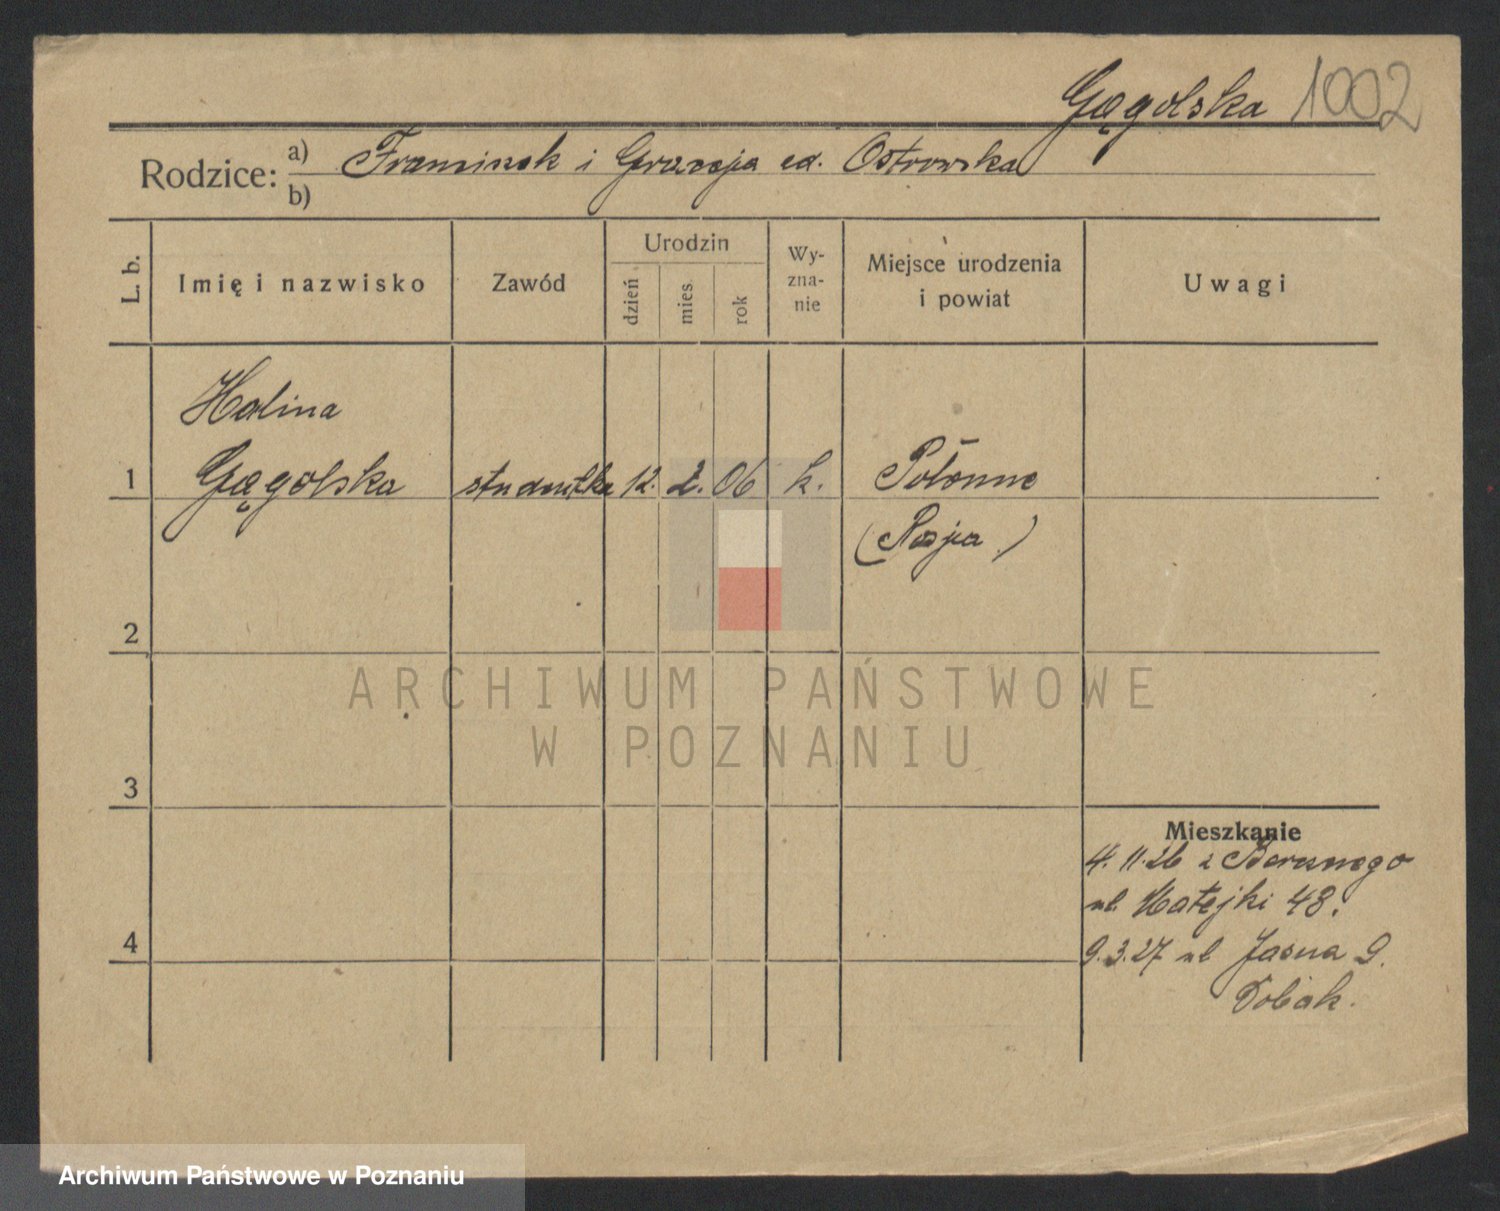 Gągolska 1002
Rodzice: a) Franciszek i Gracja ed. Ostrowska
b)
L. b. Imię i nazwisko Zawód Urodzin dzień mies rok Wy-zna-nie Miejsce urodzenia i powiat Uwagi
Halina
1 Gągolska studentka 12. 2. 06 k. Połonne
(Rosja)
2
ARCHIWUM PAŃSTWOWE
W POZNANIU
3
Mieszkanie
4. 11. 26 z
ul Matejki 48.
4
9. 3. 27 ul Jasna 9.
Archiwum Państwowe w Poznaniu